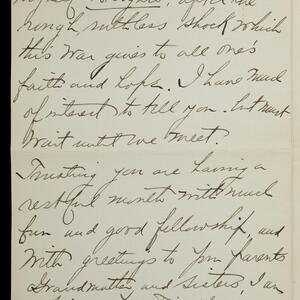 after the
rough, ruthless shock which
this War gives to all one's
faith and hope. I have much
of interest to tell you. but must
Wait until we meet.
Trusting you are having a
restful month with much
fun and good fellowship, and
With greetings to your parents
Grandmother and sisters, I am